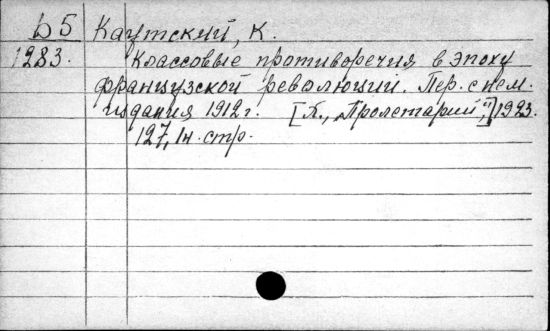 Ь 5 Каутский, К.
1283. Классовые противоречия в эпоху
французской революции. Пер. с нем.
издания 1912 г. [Х., „Пролетарий",] 1923.
127, 1 н. стр.